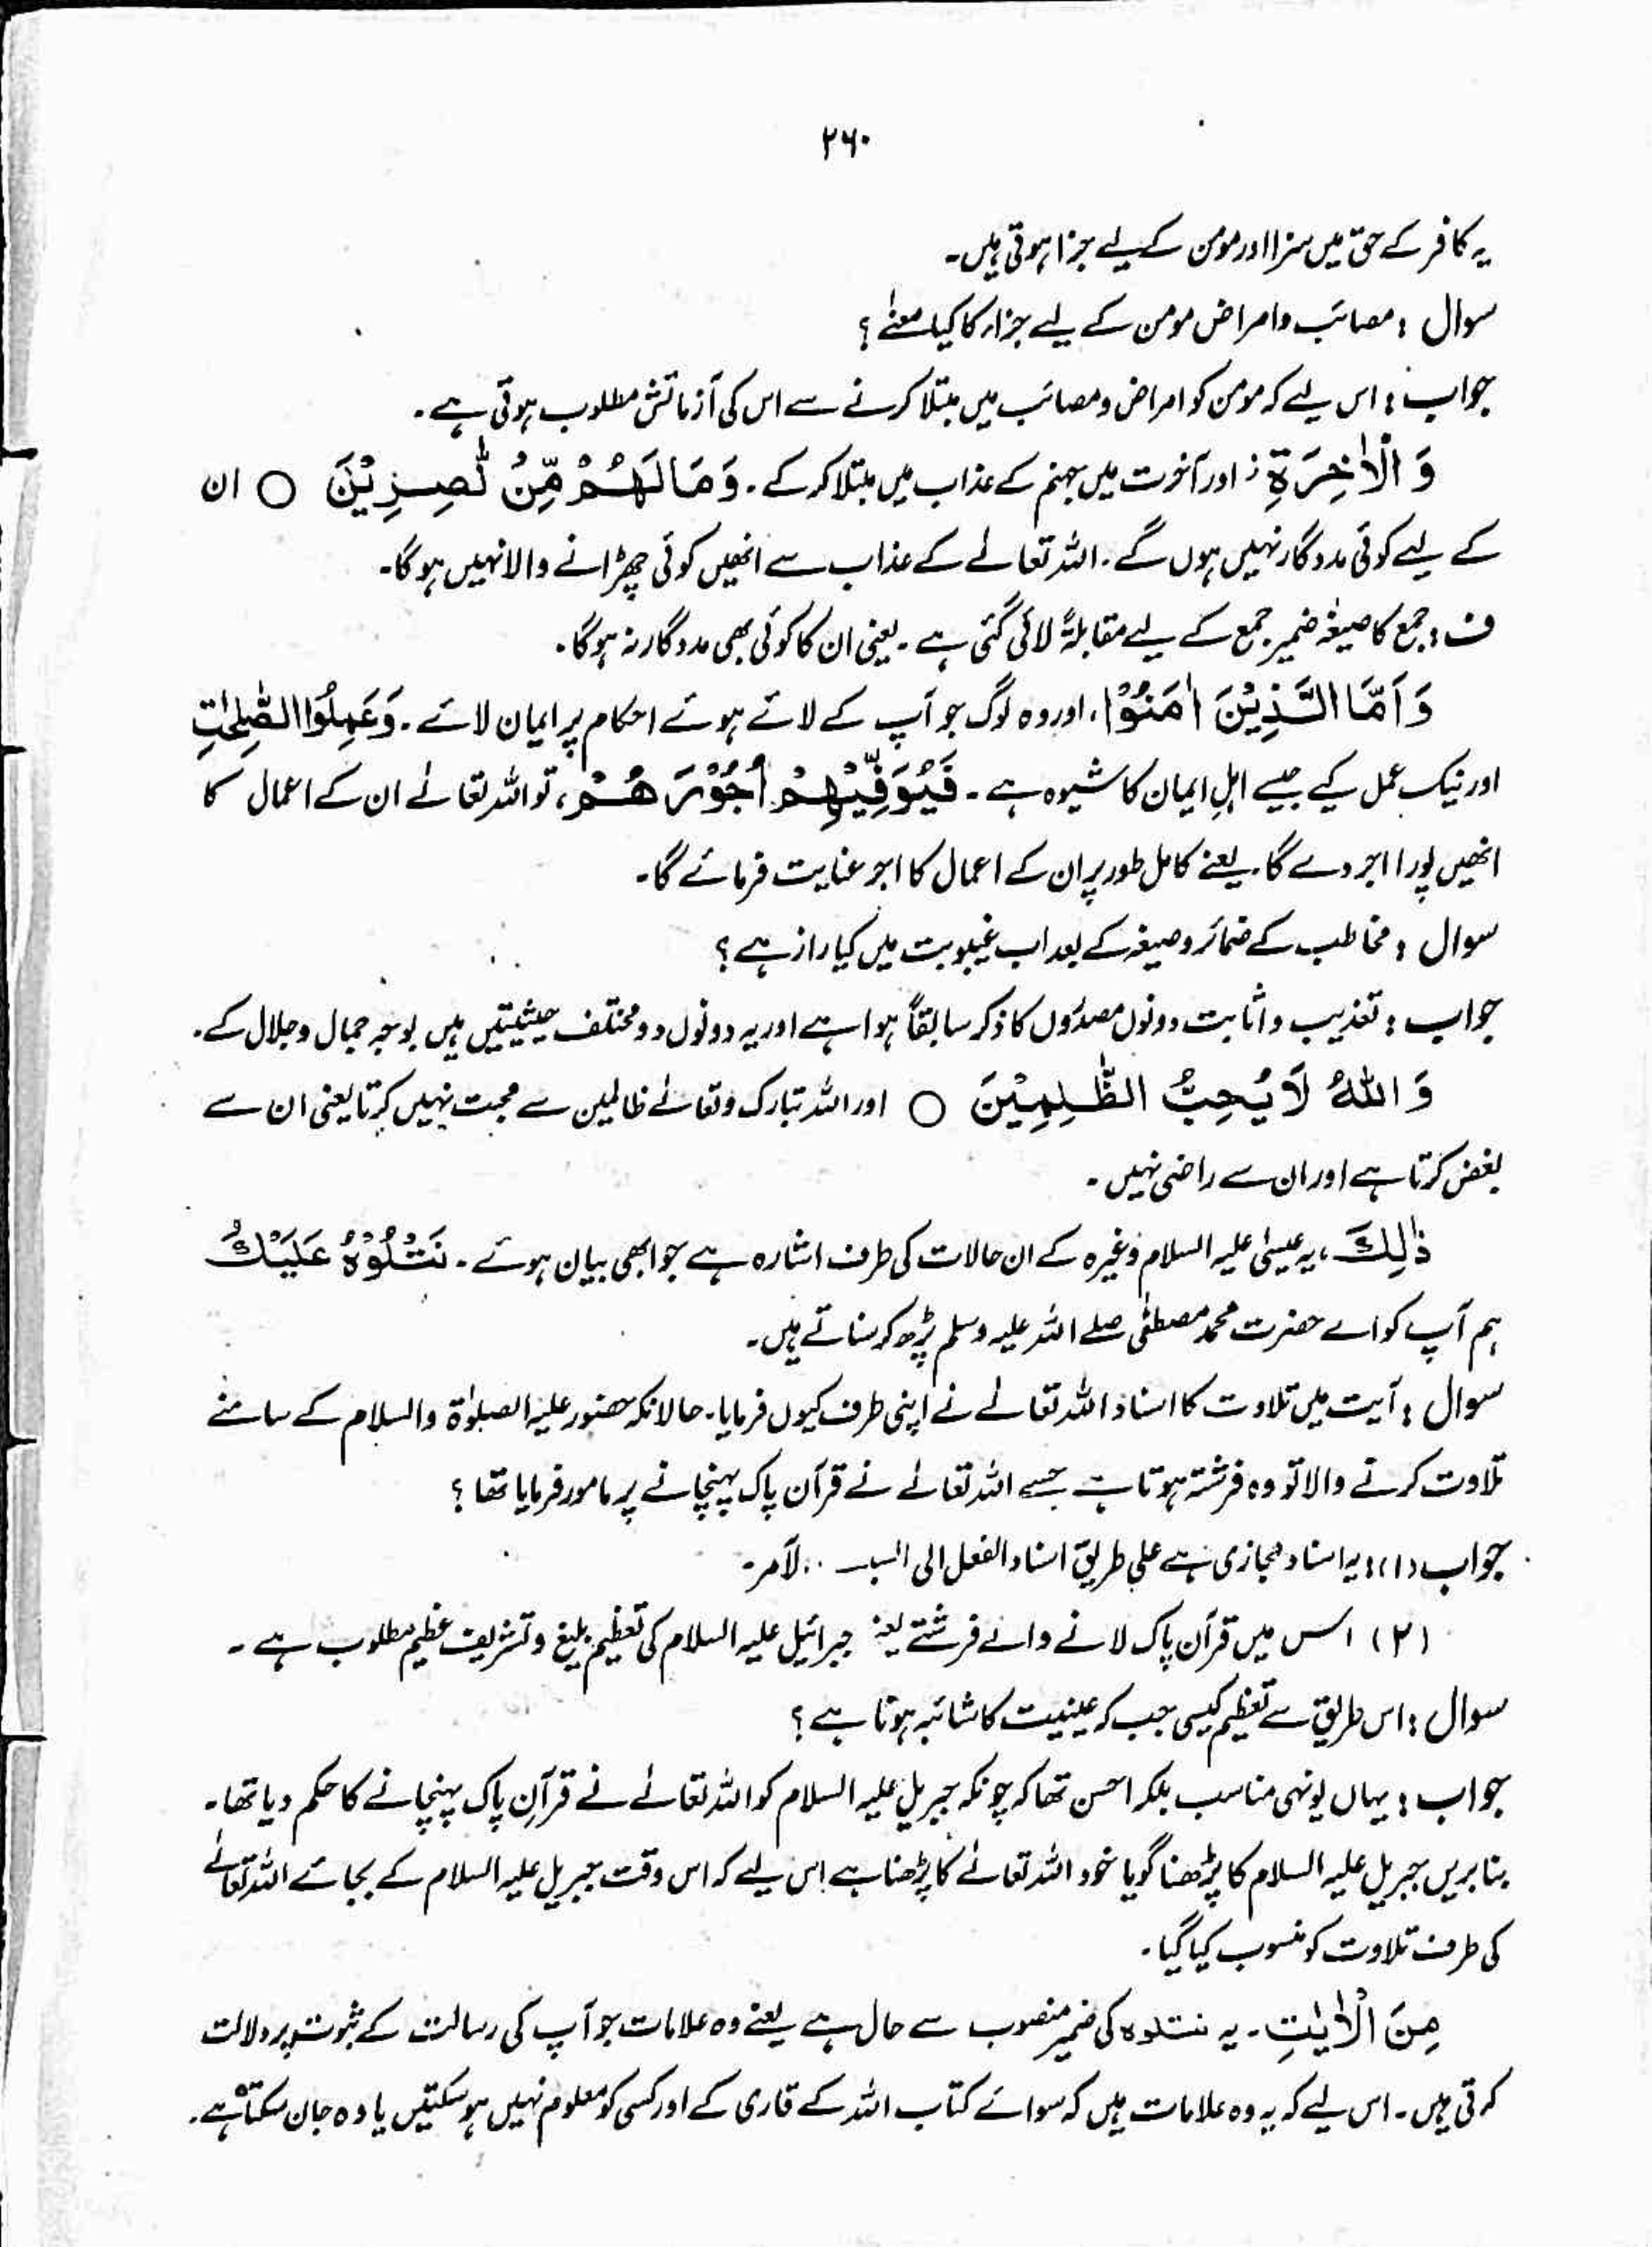 ۲۶۰
یہ کافر کے حق میں سزا اور مومن کے لیے جزا ہوتی ہیں۔
سوال : مصائب و امراض مومن کے لیے جزاء کا کیا معنیٰ ؟
جواب : اس لیے کہ مومن کو امراض و مصائب میں مبتلا کرنے سے اس کی آزمائش مطلوب ہوتی ہے ۔
وَ الْاٰخِرَةِ ز اور آخرت میں جہنم کے عذاب میں مبتلا کر کے ۔ وَمَا لَهُمْ مِّنْ نّٰصِرِيْنَ ○ ان
کے لیے کوئی مددگار نہیں ہوں گے ۔ اللہ تعالےٰ کے عذاب سے انھیں کوئی چھڑانے والا نہیں ہوگا۔
ف : جمع کا صیغہ ضمیر جمع کے لیے مقابلۃً لائی گئی ہے ۔ یعنی ان کا کوئی بھی مددگار نہ ہوگا ۔
وَ اَمَّا الَّذِيْنَ اٰمَنُوْا ، اور وہ لوگ جو آپ کے لائے ہوئے احکام پر ایمان لائے ۔ وَعَمِلُوا الصّٰلِحٰتِ
اور نیک عمل کیے جیسے اہلِ ایمان کا شیوہ ہے ۔ فَيُوَفِّيْهِمْ اُجُوْرَهُمْ ، تو اللہ تعالےٰ ان کے اعمال کا
انھیں پورا اجر دے گا۔ یعنے کامل طور پر ان کے اعمال کا اجر عنایت فرمائے گا۔
سوال : مخاطب کے ضمائر و صیغہ کے بعد اب غیبوبت میں کیا راز ہے ؟
جواب : تعذیب و اثابت دونوں مصدروں کا ذکر سابقاً ہوا ہے اور یہ دونوں دو مختلف حیثیتیں ہیں بوجہ جمال و جلال کے ۔
وَ اللّٰهُ لَا يُحِبُّ الظّٰلِمِيْنَ ○ اور اللہ تبارک و تعالےٰ ظالمین سے محبت نہیں کرتا یعنی ان سے
بغض کرتا ہے اور ان سے راضی نہیں ۔
ذٰلِكَ ، یہ عیسیٰ علیہ السلام وغیرہ کے ان حالات کی طرف اشارہ ہے جو ابھی بیان ہوئے ۔ نَتْلُوْهُ عَلَيْكَ
ہم آپ کو اے حضرت محمد مصطفٰی صلے اللہ علیہ وسلم پڑھ کر سناتے ہیں۔
سوال : آیت میں تلاوت کا اسناد اللہ تعالےٰ نے اپنی طرف کیوں فرمایا۔ حالانکہ حضور علیہ الصلوٰۃ والسلام کے سامنے
تلاوت کرنے والا تو وہ فرشتہ ہوتا ہے جسے اللہ تعالےٰ نے قرآن پاک پہنچانے پر مامور فرمایا تھا ؟
جواب (۱) : یہ اسناد مجازی ہے علی طریق اسناد الفعل الی السبب الآمر۔
(۲) اس میں قرآن پاک لانے والے فرشتے یعنے جبرائیل علیہ السلام کی تعظیم بلیغ و تشریف عظیم مطلوب ہے ۔
سوال : اس طریق سے تعظیم کیسی جب کہ عینیت کا شائبہ ہوتا ہے ؟
جواب : یہاں یونہی مناسب بلکہ احسن تھا کہ چونکہ جبریل علیہ السلام کو اللہ تعالےٰ نے قرآنِ پاک پہنچانے کا حکم دیا تھا۔
بنا بریں جبریل علیہ السلام کا پڑھنا گویا خود اللہ تعالےٰ کا پڑھنا ہے اس لیے کہ اس وقت جبریل علیہ السلام کے بجائے اللہ تعالےٰ
کی طرف تلاوت کو منسوب کیا گیا ۔
مِنَ الْاٰيٰتِ ۔ یہ نتلوہ کی ضمیر منصوب سے حال ہے یعنے وہ علامات جو آپ کی رسالت کے ثبوت پر دلالت
کرتی ہیں ۔ اس لیے کہ یہ وہ علامات ہیں کہ سوائے کتاب اللہ کے قاری کے اور کسی کو معلوم نہیں ہو سکتیں یا وہ جان سکتا ہے ۔